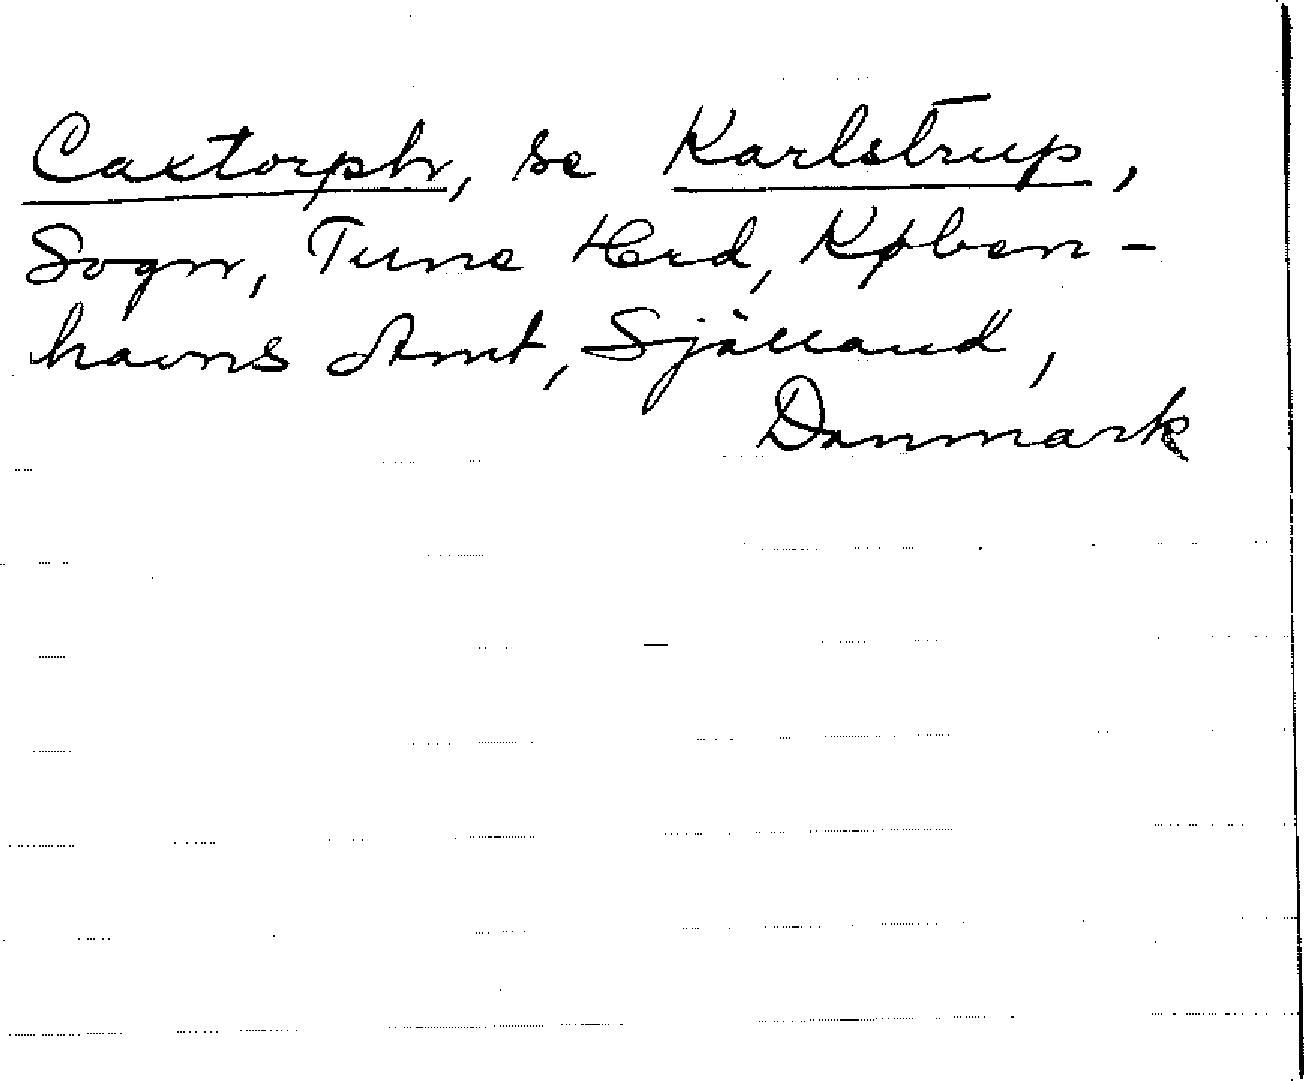 Caxtorph, se Karlstrup,
Sogn, Tune Herd, Køben-
havns Amt, Själland,
Danmark